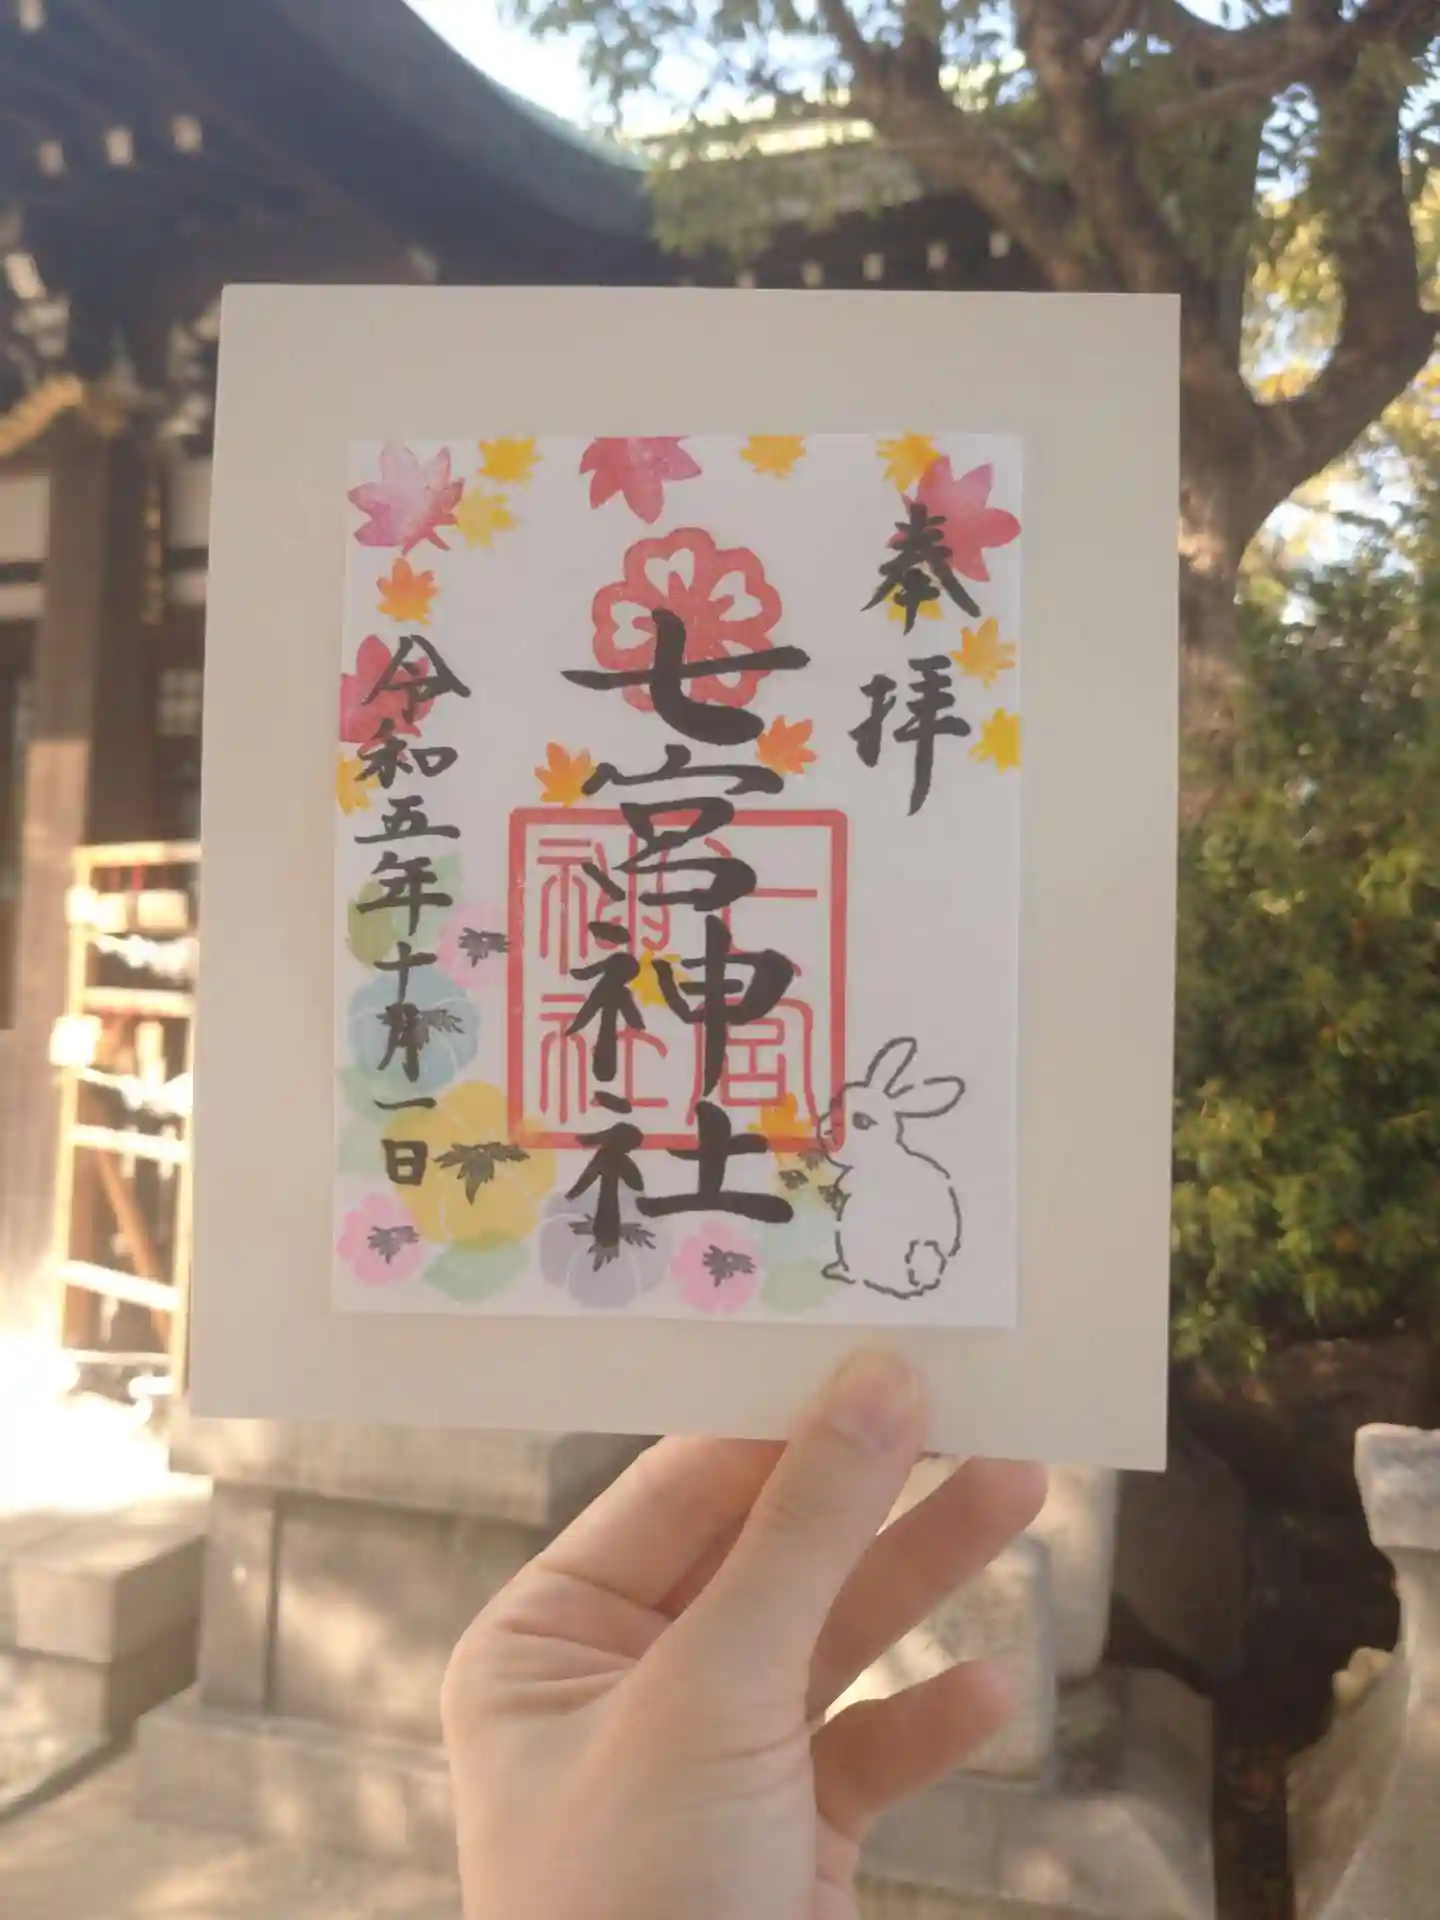 奉拝
七宮神社
七宮神社
令和五年十月一日